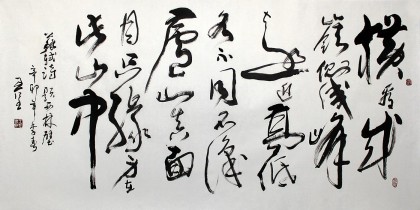 橫看成
嶺側成峰
遠近高低
各不同不識
廬山真面
目只緣身在
此山中
蘇軾詩題西林壁
辛卯年